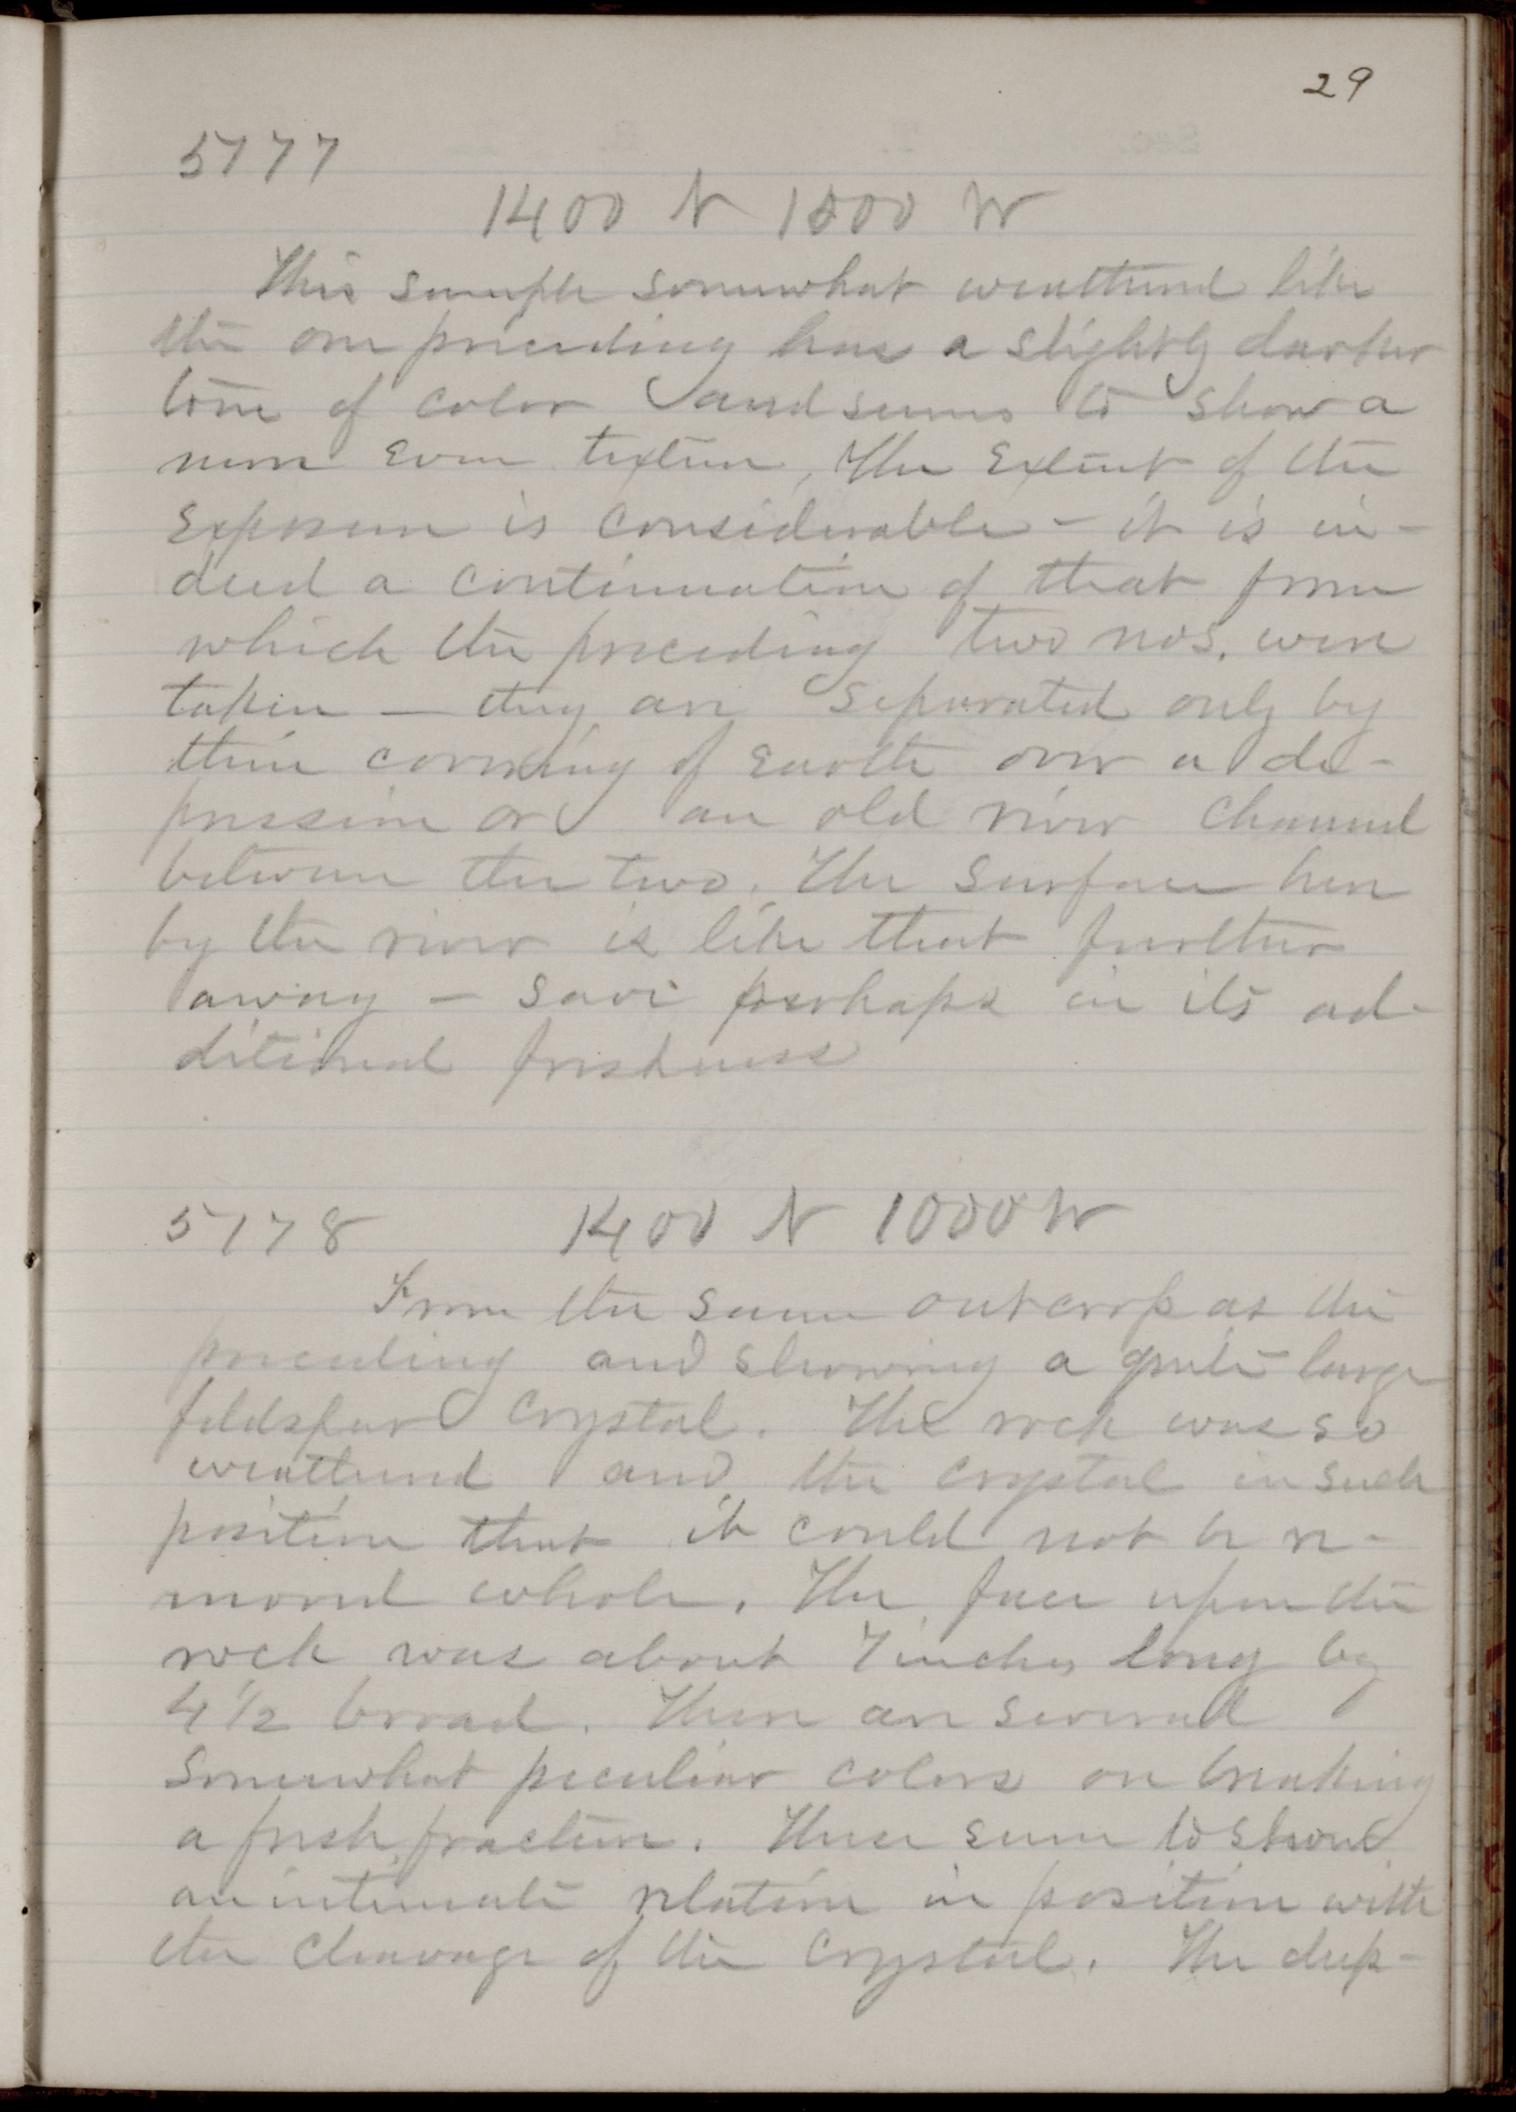 29
5177
1400 N 1000 W
This sample somewhat weathered like
the one preceding has a slightly darker
tone of color and seems to show a
more even texture, The extent of the
exposure is considerable - it is in-
deed a continuation of that from
which the preceding two nos. were
taken - they are separated only by
thin covering of earth over a de-
pression or an old river channel
between the two. The surface here
by the river is like that further
away - save perhaps in its ad-
ditional freshness
5178 1400 N 1000 W
From the same outcrop as the
preceding and showing a quite large
feldspar crystal. The rock was so
weathered and the crystal in such
position that it could not be re-
moved whole. The face upon the
rock was about 7 inches long by
4 1/2 broad. There are several
somewhat peculiar colors on breaking
a fresh fracture. These seem to show
an intimate relation in position with
the cleavage of the crystal. The deep-